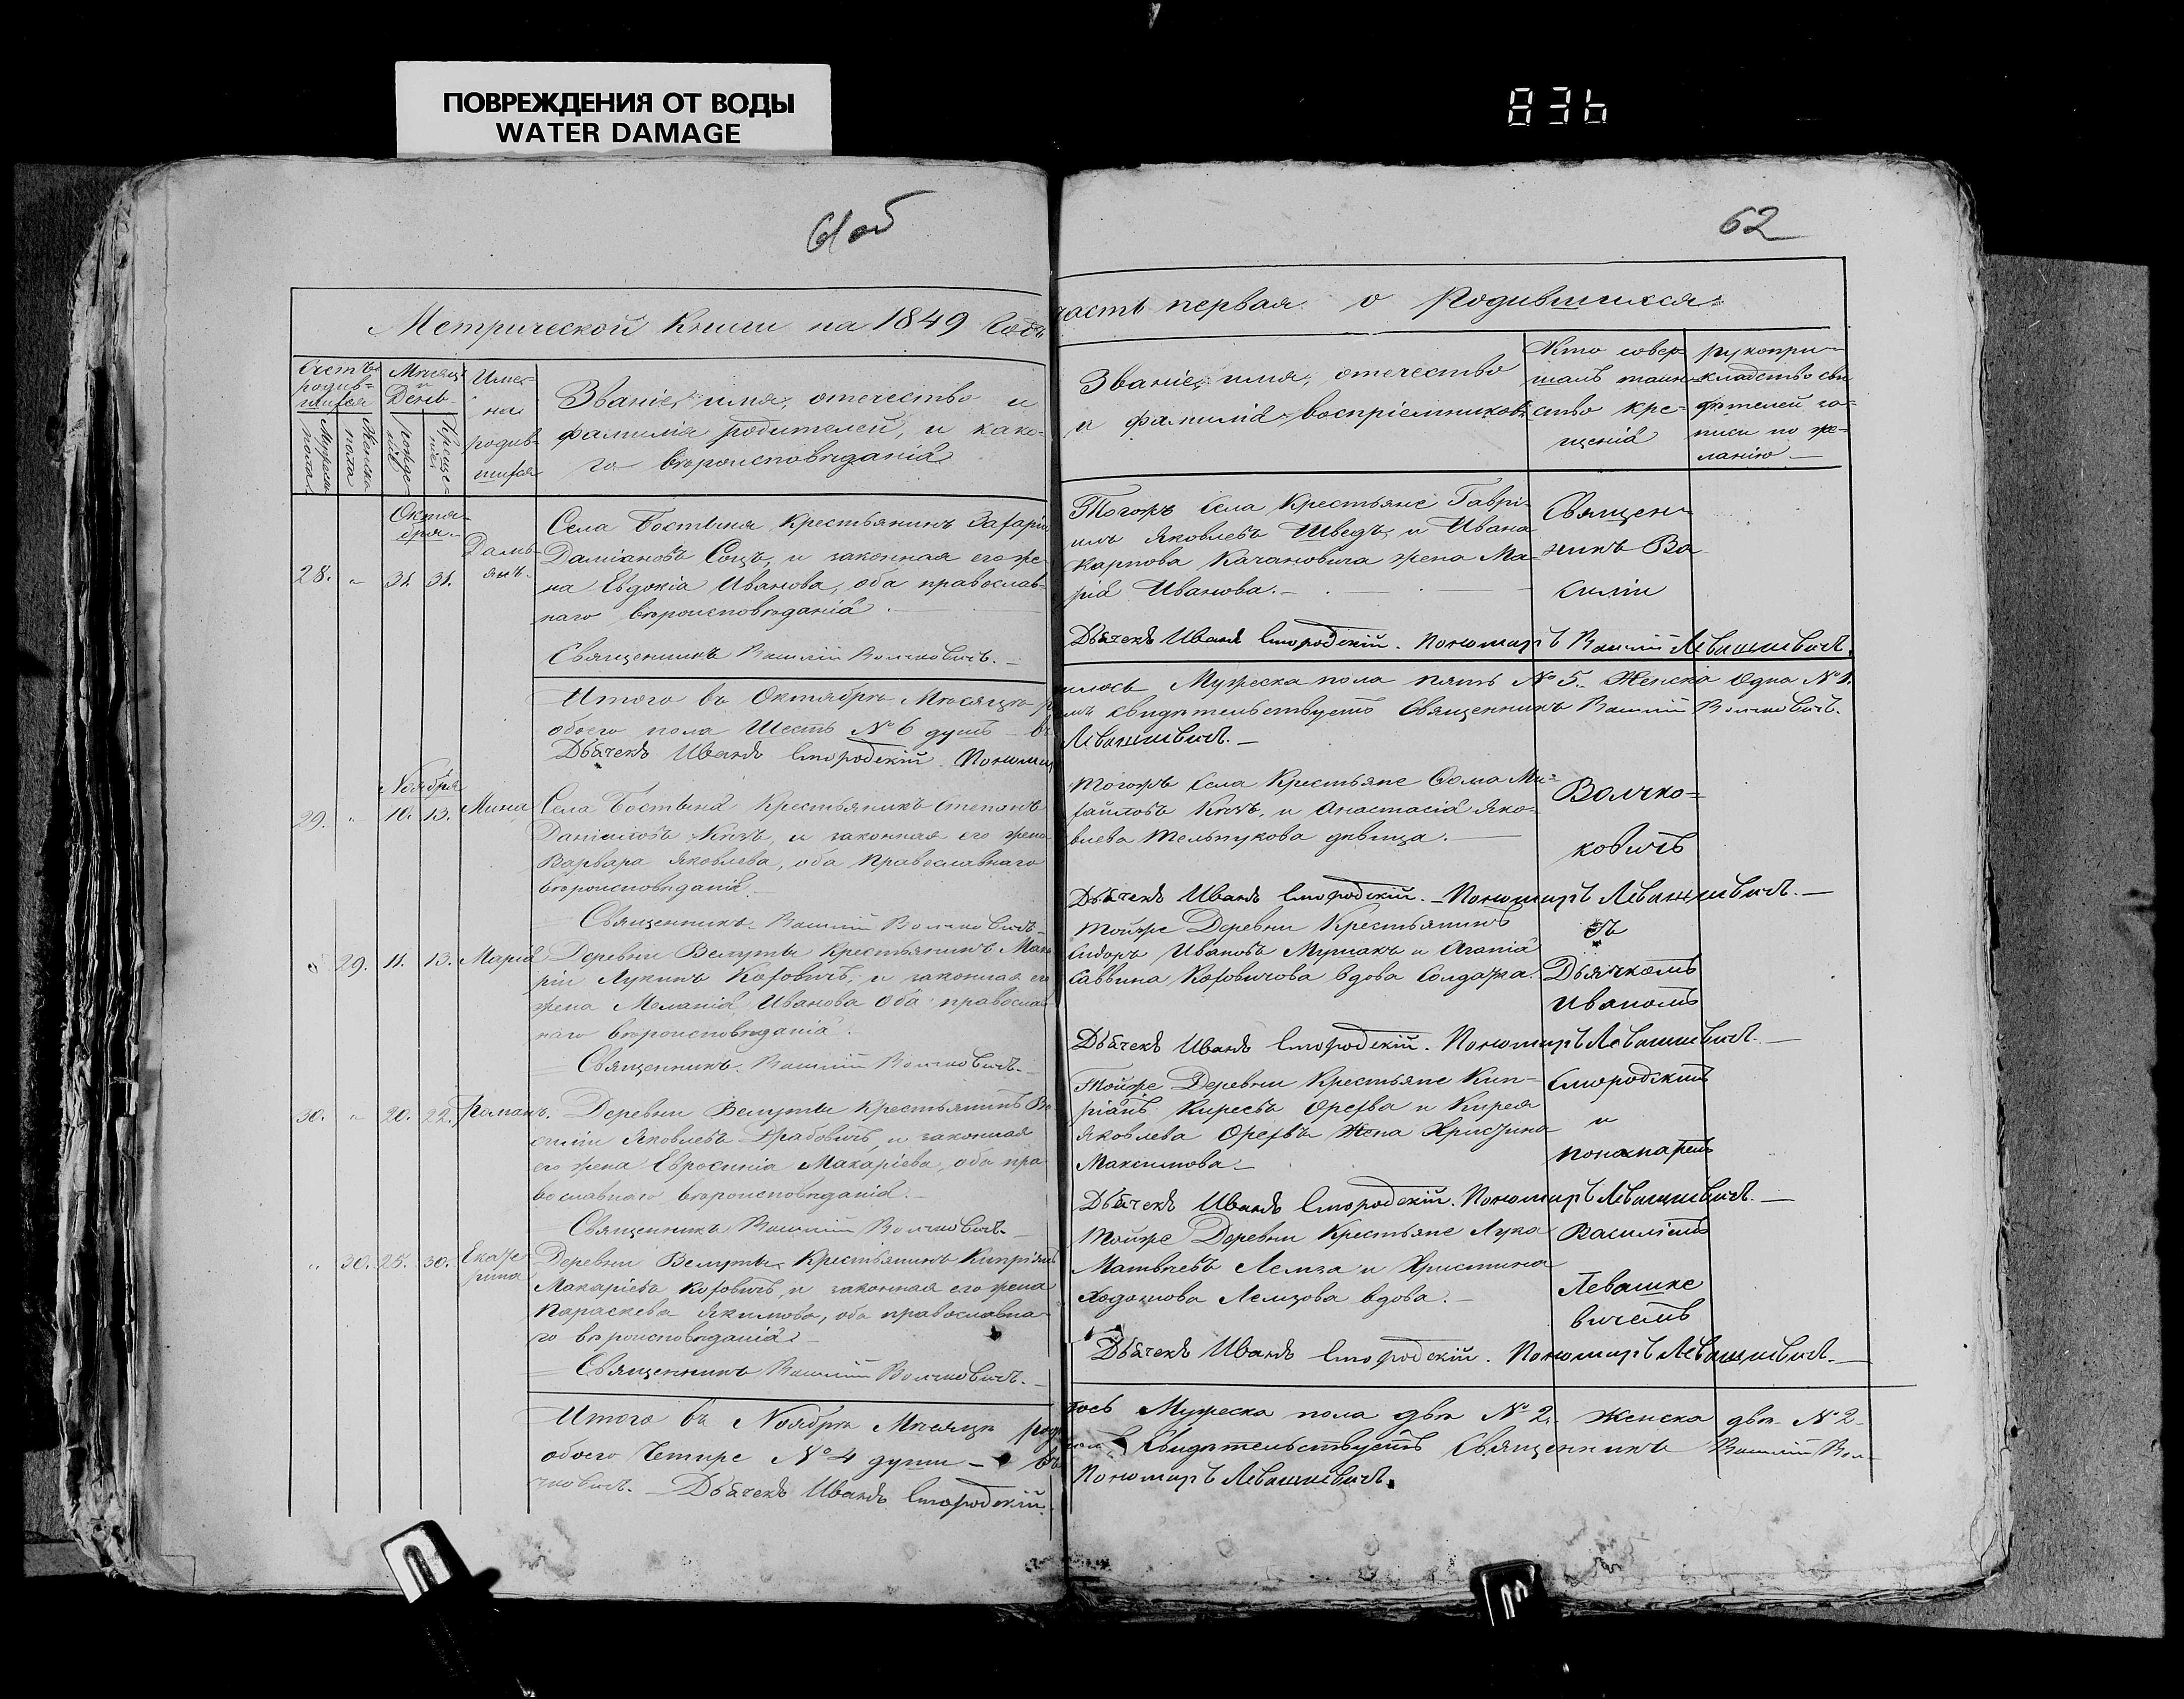 ПОВРЕЖДЕНИЯ ОТ ВОДЫ
WATER DAMAGE
836
61 об
62
Метрической книги на 1849 годъ
часть первая о Родившихся.
Счетъ родив-
шихся
Мужеска пола
Женска пола
Мѣсяцъ
и
День
рожденія
крещенія
Имена
родив-
шихся
Званіе, имя, отечество и
фамилія родителей, и како-
го вѣроисповѣданія
Званіе, имя, отечество
и фамилія воспріемниковъ
Кто совер-
шалъ таин-
ство кре-
щенія
Рукопри-
кладство сви
дѣтелей за-
писи по же-
ланію
Октя-
бря
28. „ 31. 31.
Дамь-
янъ.
Села Бостыня Крестьянинъ Захарій
Даміановъ Соцъ, и законная его же-
на Евдокія Иванова, оба православ-
наго вѣроисповѣданія.
Священникъ Василій Волчковичъ.
Тогожъ Села Крестьяне Гаврі-
илъ Яковлевъ Шведъ, и Ивана
Карпова Качановича жена Ма-
рія Иванова.
Дьячекъ Иванъ Смородскій. Пономарь Василій Левашкевичъ.
Священ-
никъ Ва
силій
Итого въ Октябрѣ Мѣсяцѣ
илось Мужеска пола пять № 5. Женска Одна № 1.
обоего пола Шесть № 6 душъ
свидѣтельствуетъ Священникъ Василій Волчковичъ.
Дьячекъ Иванъ Смородскій. Пономарь
Левашкевичъ.
Ноября
29. „ 10. 13. Мина
Села Бостыня Крестьянинъ Степанъ
Даніиловъ Князь, и законная его жена
Варвара Яковлева, оба Православнаго
вѣроисповѣданія
Священникъ Василій Волчковичъ.
Тогожъ Села Крестьяне Ѳома Ми-
хайловъ Князь, и Анастасія Яко-
влева Тельпукова дѣвица.
Дьячекъ Иванъ Смородскій. Пономарь Левашкевичъ.
Волчко-
ковичъ
29. 11. 13. Марія
Деревни Велуты Крестьянинъ Мака
рій Лукинъ Коховичъ, и законная его
жена Меланія Иванова оба правосла-
наго вѣроисповѣданія.
Священникъ Василій Волчковичъ.
Тойже Деревни Крестьянинъ
Сидоръ Ивановъ и Агапія
Саввина Коховичова вдова Солдатка.
Дьячекъ Иванъ Смородскій. Пономарь Левашкевичъ.
съ
Дьячкомъ
Иваномъ
30. „ 20. 22. Романъ.
Деревни Велуты Крестьянинъ Ва
силій Яковлевъ Драбовичъ, и законная
его жена Евросинія Макаріева, оба пра
вославнаго вѣроисповѣданія.
Священникъ Василій Волчковичъ
Тойже Деревни Крестьяне Кип-
ріанъ Киреевъ Орехва и Кирея
Яковлева Орехвы Жена Христина
Максимова
Дьячекъ Иванъ Смородскій. Пономарь Левашкевичъ.
Смородскимъ
и
понамаремъ
„ 30. 25. 30.
Екате
рина
Деревни Велуты Крестьянинъ Кипріянъ
Макаріевъ Коховичъ, и законная его жена
Параскева Якимова, оба православна-
го вѣроисповѣданія
Священникъ Василій Волчковичъ.
Тойже Деревни Крестьяне Лука
Матвѣевъ Лемза и Христина
Лемзова вдова.
Дьячекъ Иванъ Смородскій. Пономарь Левашкевичъ.
Василіемъ
Левашке
вичемъ
Итого въ Ноябрѣ Мѣсяцѣ роди
лось Мужеска пола два № 2. Женска два № 2
обоего Четыре № 4 души
Свидѣтельствуетъ Священникъ Василій Вол-
чковичъ. Дьячекъ Иванъ Смородскій.
Пономарь Левашкевичъ.